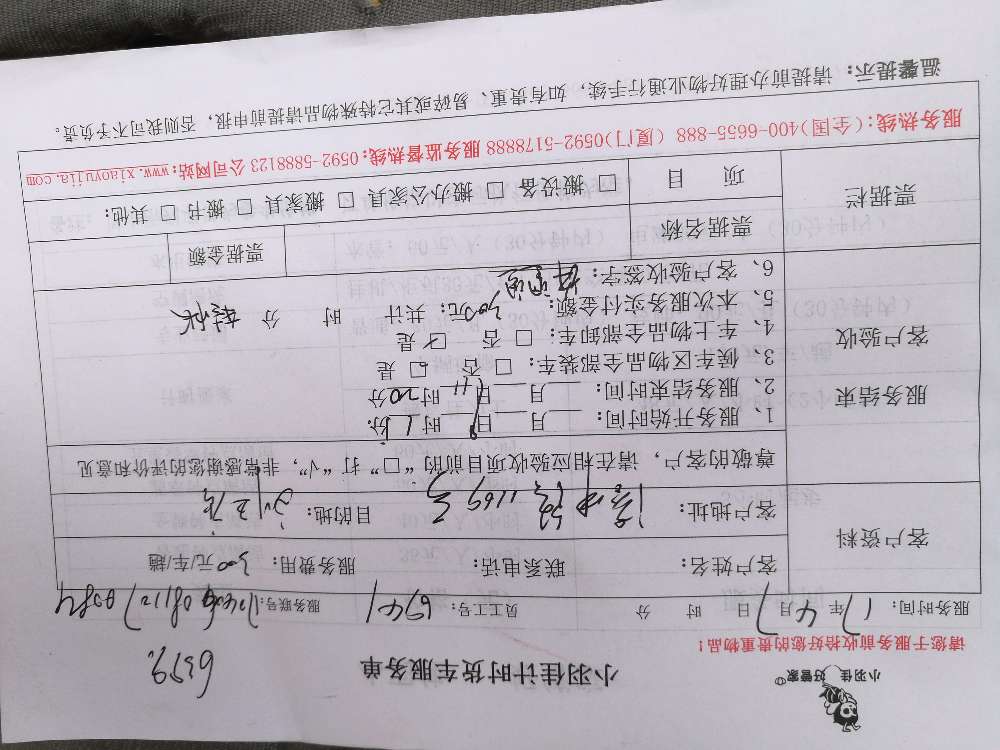 小羽佳 好管家
小羽佳计时货车服务单
6379
请您于服务前收拾好您的贵重物品!
服务时间: 17年 4月 7日 时 分 员工工号: 6941 服务联号:
客户资料
客户姓名: 联系电话: 服务费用: 300元/车/趟
客户地址: 1169号 目的地:
尊敬的客户, 请在相应验收项目前的“□”打“√”, 非常感谢您的评价和意见
服务结束
客户验收
1、服务开始时间: 月 日 时 分
2、服务结束时间: 月 日 11时20分
3、候车区物品全部装车: □ 否 □ 是
4、车上物品全部卸车: □ 否 ☑ 是
5、本次服务实付金额: 300元; 共计 时 分
6、客户验收签字:
票据栏
票据名称 票据金额
项 目 □ 搬设备 □ 搬办公家具 □ 搬家具 □ 搬书 □ 其他:
服务热线:(全国)400-6655-888 (厦门)0592-5178888 服务监督热线:0592-5888123 公司网站:www.xiaoyujia.com
温馨提示: 请提前办理好物业通行手续, 如有贵重、易碎或其它特殊物品请提前申报, 否则我司不予负责。